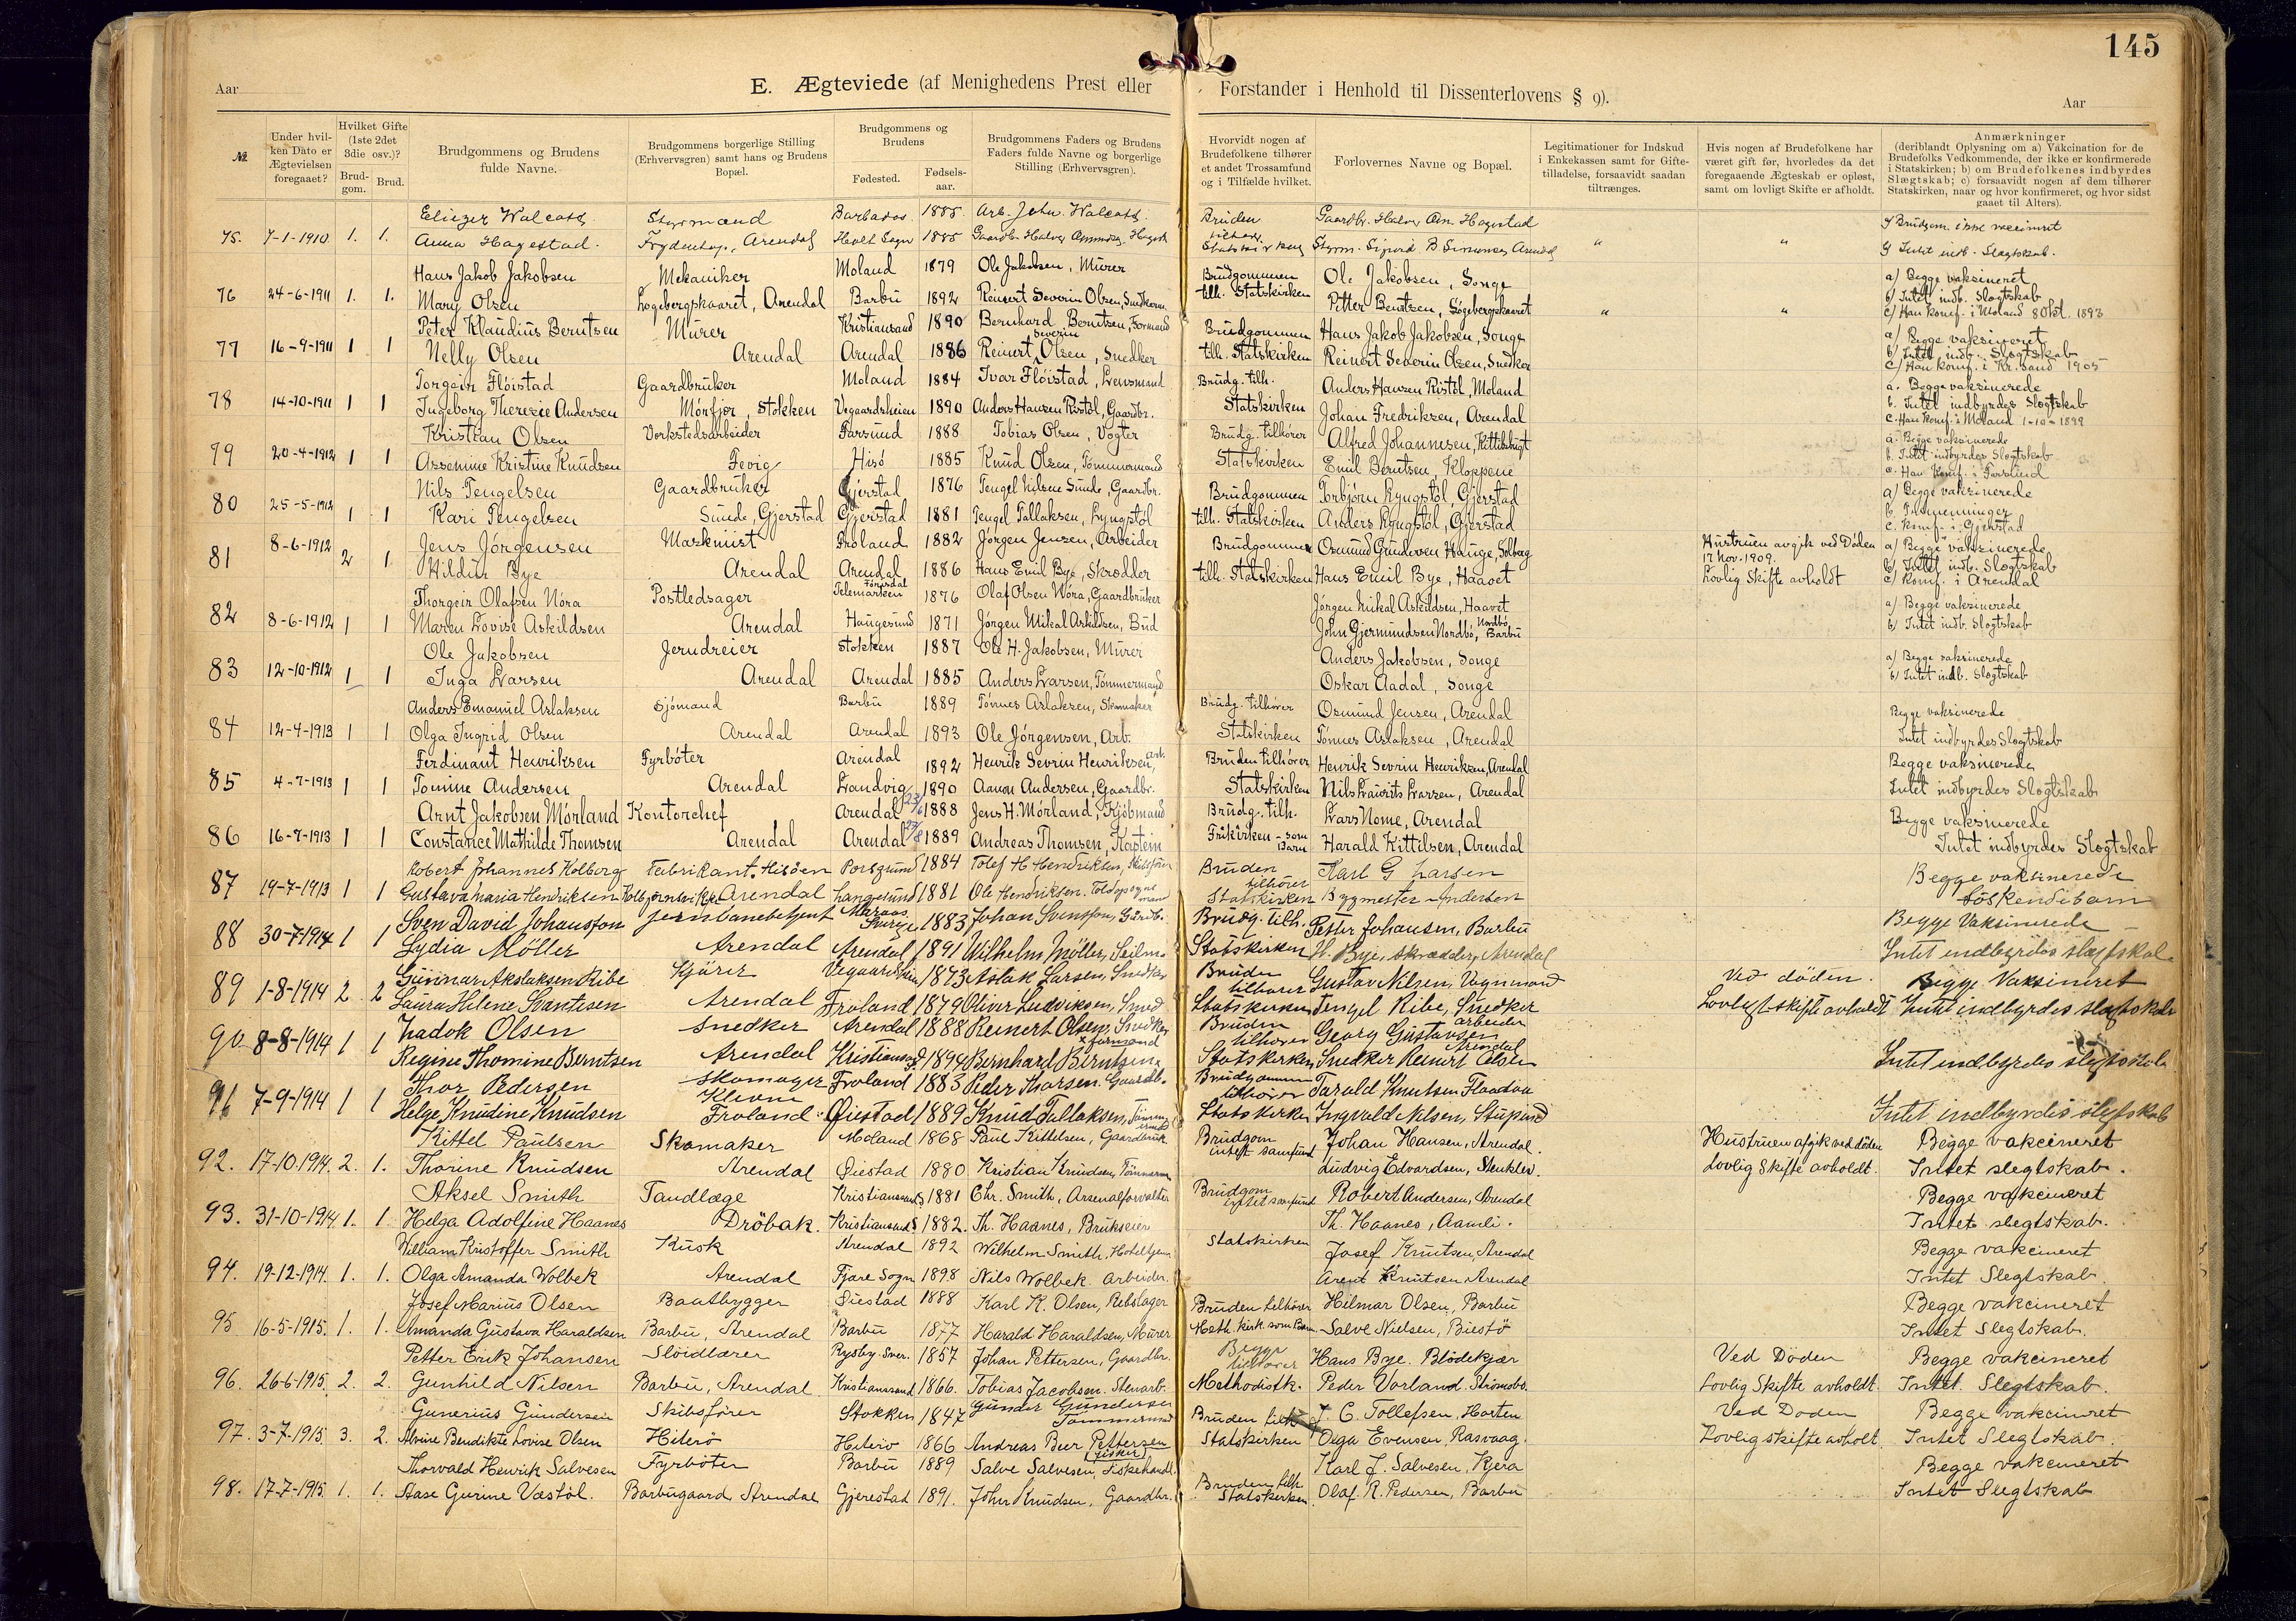 145
Aar
E. Ægteviede (af Menighedens Prest eller Forstander i Henhold til Dissenterlovens § 9).
Aar
№
Under hvilken Dato er Ægtevielsen foregaaet?
Hvilket Gifte (1ste 2det 3die osv.)?
Brudgom.
Brud.
Brudgommens og Brudens fulde Navne.
Brudgommens borgerlige Stilling (Erhvervsgren) samt hans og Brudens Bopæl.
Brudgommens og Brudens
Fødested.
Fødselsaar.
Brudgommens Faders og Brudens Faders fulde Navne og borgerlige Stilling (Erhvervsgren).
Hvorvidt nogen af Brudefolkene tilhører et andet Trossamfund og i Tilfælde hvilket.
Forlovernes Navne og Bopæl.
Legitimationer for Indskud i Enkekassen samt for Giftetilladelse, forsaavidt saadan tiltrænges.
Hvis nogen af Brudefolkene har været gift før, hvorledes da det foregaaende Ægteskab er opløst, samt om lovligt Skifte er afholdt.
Anmærkninger (deriblandt Oplysning om a) Vakcination for de Brudefolks Vedkommende, der ikke er konfirmerede i Statskirken; b) om Brudefolkenes indbyrdes Slægtskab; c) forsaavidt nogen af dem tilhører Statskirken, naar og hvor konfirmeret, og hvor sidst gaaet til Alters).
Eliezer Walcott Styrmand Barbados 1885 Arb. John Walcott Bruden Gaardbr. Halvor Om. Hagestad
75. 7-1-1910 1. 1. Anna Hagestad. Arendal Holt Sogn 1885 Gaardbr. Halvor tilhører Statskirken Styrm. Sigurd B Simonsen Arendal " " Intet indb. Slægtskab.
Hans Jakob Jakobsen Mekaniker Moland 1879 Ole Jakobsen, Murer Brudgommen Ole Jakobsen, Songe a) Begge vaksineret
76 24-6-1911 1. 1. Mary Olsen Arendal Barbu 1892 Reinert Severin Olsen, Snedkerm. tilh. Statskirken Petter Berntsen, b) Intet indb. Slægtskab
" " c) Han konf. i Moland 8 Okt. 1893
Peter Klaudius Berntsen Murer Kristianssand 1890 Bernhard Berntsen, Formand Brudgommen Hans Jakob Jakobsen, Songe a) Begge vaksineret
77 16-9-1911 1 1 Nelly Olsen Arendal Arendal 1886 Reinert Severin Olsen, Snedker tilh. Statskirken Reinert Severin Olsen, Snedker b) Intet indb. Slægtskab
c) Han konf. i Kr.sand 1905
Torgeir Flöistad Gaardbruker Moland 1884 Ivar Flöistad, Lensmand Brudg. tilh. Anders Hansen Ristöl, Moland a. Begge vaksinerede
78 14-10-1911 1 1 Ingeborg Therezie Andersen Mörfjær, Stokken Vegaardsheien 1890 Anders Hansen Ristöl, Gaardbr. Statskirken Johan Fredriksen, Arendal b. Intet indbyrdes Slægtskab
c. Han konf. i Moland 1-10-1899
Kristian Olsen Verkstedsarbeider Farsund 1888 Tobias Olsen, Vogter Brudg. tilhører Alfred Johannesen, Kittelsbugt a. Begge vaksinerede
79 20-4-1912 1 1 Assemine Kristine Knudsen Fevig Hisö 1885 Knud Olsen, Tömmermand Statskirken Emil Berntsen, Kloppene b. Intet indbyrdes Slægtskab
c. Han konf. i Farsund
Nils Tengelsen Gaardbruker Gjerstad 1876 Tengel Nilsene Sunde, Gaardbr. Brudgommen Torbjörn Ryngstöl, Gjerstad a) Begge vaksinerede
80 25-5-1912 1 1 Kari Tengelsen Sunde, Gjerstad Gjerstad 1881 Tengel Tallaksen, Lyngstöl tilh. Statskirken Anders Lyngstöl, Gjerstad b. Innenninger
c. konf. i Gjerstad
Jens Jörgensen Maskinist Froland 1882 Jörgen Jensen, Arbeider Brudgommen Osmund Gundersen Hauge, Solberg Hustruen avgik ved Døden 17 Nov. 1909. a) Begge vaksinerede
81 8-6-1912 2 1 Hildur Bye Arendal Arendal 1886 Hans Emil Bye, Skrædder tilh. Statskirken Hans Emil Bye, Haavet Lovlig Skifte avholdt b) Intet indb. Slægtskab
c) konf. i Arendal
Thorgeir Olafsen Nöra Postledsager Telemarken 1876 Olaf Olsen Nöra, Gaardbruker Jörgen Mikal Askildsen, Haavet a) Begge vaksinerede
82 8-6-1912 1 1 Maren Lovise Askildsen Arendal Haugesund 1871 Jörgen Mikal Askildsen, Bud John Gjermundsen Nordbö, Nordbö, Barbu b) Intet indb. Slægtskab
Ole Jakobsen Jerndreier Stokken 1887 Ole H. Jakobsen, Murer Anders Jakobsen, Songe a) Begge vaksinerede
83 12-10-1912 1 1 Inga Larsen Arendal Arendal 1885 Anders Larsen, Tömmermand Oskar Aadal, Songe b) Intet indb. Slægtskab
Anders Emanuel Aslaksen Sjömand Barbu 1889 Tönnes Aslaksen, Skomaker Brudg. tilhører Osmund Jensen, Arendal Begge vaksinerede
84 12-4-1913 1 1 Olga Ingrid Olsen Arendal Arendal 1893 Ole Jörgensen, Arb. Statskirken Tönnes Aslaksen, Arendal Intet indbyrdes Slægtskab
Ferdinant Henriksen Fyrböter Arendal 1892 Henrik Sevrin Henriksen, Arb. Bruden tilhører Henrik Sevrin Henriksen, Arendal Begge vaksinerede
85 4-7-1913 1 1 Tomine Andersen Arendal Landvig 1890 Aanon Andersen, Gaardbr. Statskirken Nils Laurits Larsen, Arendal Intet indbyrdes Slægtskab
Arnt Jakobsen Mörland Kontorchef Arendal 23/6 1888 Jens H. Mörland, Kjöbmand Brudg. tilh. Lars Nome, Arendal Begge vaksinerede
86 16-7-1913 1 1 Constance Mathilde Thomsen Arendal Arendal 27/8 1889 Andreas Thomsen, Kaptein Frikirken - som Barn Harald Kittilsen, Arendal Intet indbyrdes Slægtskab
Robert Johannes Kolberg Fabrikant. Hisöen Porsgrund 1884 Tolef H Hendriksen, Bruden Karl G Larsen Begge vaksinerede
87 19-7-1913 1 1 Gustava Maria Hendriksen Arendal Langesund 1881 Ole Hendriksen. tilhører Statskirken Bygmester Andersen Söskendebarn
Sven David Johansson Jernbanebetjent Sverige 1883 Johan Svensson, Gårdb. Brudg. tilh. Petter Johansen, Barbu Begge Vaksinerede
88 30-7-1914 1 1 Lydia Möller Arendal Arendal 1891 Wilhelm Möller, Seilm. Statskirken H. Bye, Skrædder, Arendal Intet indbyrdes slægtskab
Gunnar Akslaksen Ribe Kjörer 1873 Aslak Larsen, Snedker Bruden Gustav Nilsen, Vognmand Ved döden. Begge Vaksineret
89 1-8-1914 2 2 Laura Helene Svantisen Arendal Froland 1879 Oliver Ludviksen, Smed tilhører Statskirken Tengel Ribe, Snedker Lovligt skifte avholdt Intet indbyrdes slægtskab
Zadok Olsen Snedker Arendal 1888 Reinert Olsen, Snedker Bruden Georg Gustavsen arbeider Arendal
90 8-8-1914 1 1 Regine Thomine Berntsen Arendal Kristianssand 1894 Bernhard Berntsen, formand tilhører Statskirken Snedker Reinert Olsen Intet indbyrdes slegtskab
Thor Pedersen Skomager Froland 1883 Peder Thorsen. Gaardb. Brudgommen Tarald Knutsen Flaadva
91 7-9-1914 1 1 Helge Knudine Knudsen Klevene Froland Øiestad 1889 Knud Tallaksen, tilhører Statskirken Ingvald Nilsen, Intet indbyrdes slegtskab
Kittel Paulsen Skomaker Moland 1868 Paul Kittelsen, Gaardbruk Brudgom Johan Hansen, Arendal. Hustruen afgik ved döden Begge vakcineret
92. 17-10-1914. 2. 1. Thorine Knudsen Arendal Øiestad 1880 Kristian Knudsen, Tömmerm. intet samfund Ludvig Edvardsen, Stenklev. Lovlig Skifte avholdt. Intet slegtskab.
Aksel Smith Tandlæge Kristianssand S 1881 Chr. Smith, Arsenalforvalter Brudgom intet samfund Robert Andersen, Arendal Begge vakcineret
93. 31-10-1914. 1. 1 Helga Adolfine Haanes Dröbak. Kristianssand S 1882. Th. Haanes, Brukseier Th. Haanes, Aamli. Intet slegtskab.
William Kristoffer Smith Kusk Arendal 1892 Wilhelm Smith, Hoteltjener Statskirken Josef Knutsen, Arendal Begge vakcineret
94. 19-12-1914. 1. 1. Olga Amanda Wolbek Arendal Fjære Sogn 1898 Nils Wolbek. Arbeider. Arent Knutsen Arendal Intet Slegtskab.
Josef Marius Olsen Baatbygger Öiestad 1888 Karl K. Olsen, Rebslager Bruden tilhører Hilmar Olsen, Barbu Begge vakcineret
95. 16-5-1915. 1. 1. Amanda Gustava Haraldsen Barbu, Arendal Barbu 1877 Harald Haraldsen, Murer Meth. kirk. som Barn. Salve Nielsen, Intet Slegtskab.
Petter Erik Johansen Slöidlærer Ryssby. Sver. 1857 Johan Pettersen, Gaardbr. Begge tilhører Hans Bye. Blödekjær Ved Döden Begge vakcineret
96. 26-6-1915. 2. 2. Gunhild Nilsen Barbu, Arendal. Kristianssand 1866. Tobias Jacobsen. Stenarb. Methodistk. Peder Vorland. Strömsbo. Lovlig Skifte avholdt. Intet. Slegtskab.
Gunerius Gundersen Skibsförer Stokken 1847 Gunder Gundersen Tömmermand Bruden tilh J. C. Tollefsen, Horten Ved Döden Begge vakcineret
97. 3-7-1915. 3. 2. Alvine Bendikte Lovise Olsen Hiterö Hiterö 1866 Andreas Beer Pettersen (fisker) Statskirken Olga Evensen, Rasvaag. Lovlig skifte avholt. Intet Slegtskab.
Thorvald Henrik Salvesen Fyrböter Barbu 1889 Salve Salvesen, Fiskehandl. Karl J. Salvesen, Kjera Begge vakcineret
98. 17-7-1915. 1. 1. Aase Gurine Væstöl. Barbugaard Arendal Gjerestad 1891. John Knudsen, Gaardbr. Bruden tilh Statskirken Olaf. R. Pedersen, Barbu Intet Slegtskab